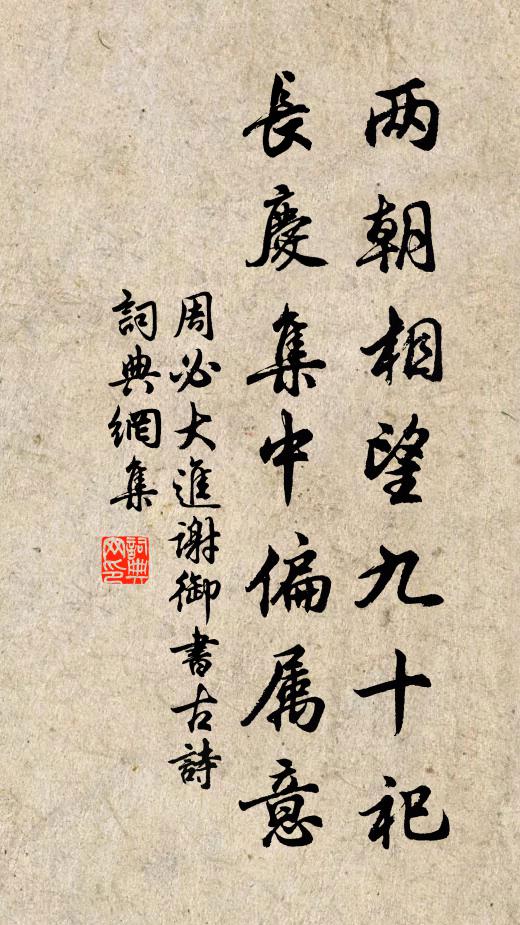 两朝相望九十祀
長慶集中偏属意
周必大進謝御書古詩
詞典網集
詞典网印